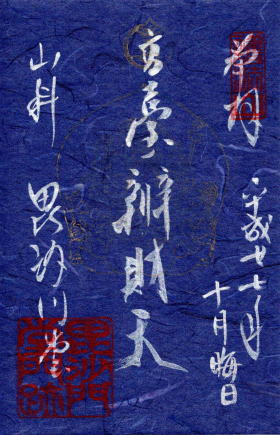 奉拝
平成廿七年
十月晦日
高臺辯財天
山科 毘沙門堂
毘沙門
堂門跡